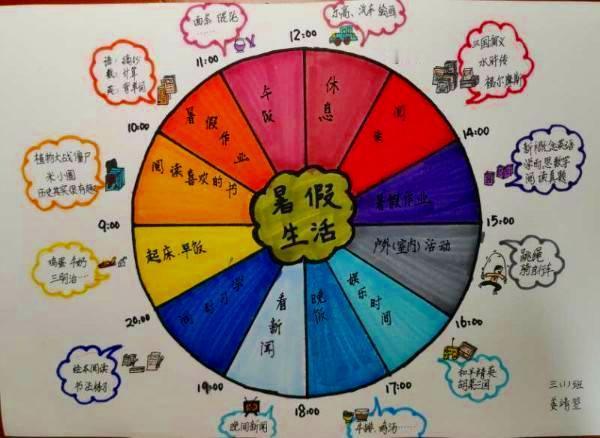 面条 馄饨
乐高、汽车 绘画
12:00
11:00
语：摘抄
数：计算
英：背单词
三国演义
水浒传
福尔摩斯
午饭
休息
阅读
暑假作业
10:00
14:00
植物大战僵尸
米小圈
历史其实很有趣
阅读喜欢的书
新概念英语
学而思数学
阅读真题
暑假作业
暑假
生活
9:00
15:00
鸡蛋 牛奶
三明治……
起床、早饭
户外(室内)活动
跳绳
骑自行车
学习时间
看新闻
晚饭
娱乐时间
20:00
16:00
绘本阅读
书法练习
19:00
17:00
18:00
晚间新闻
牛排、鸡汤……
三(1)班